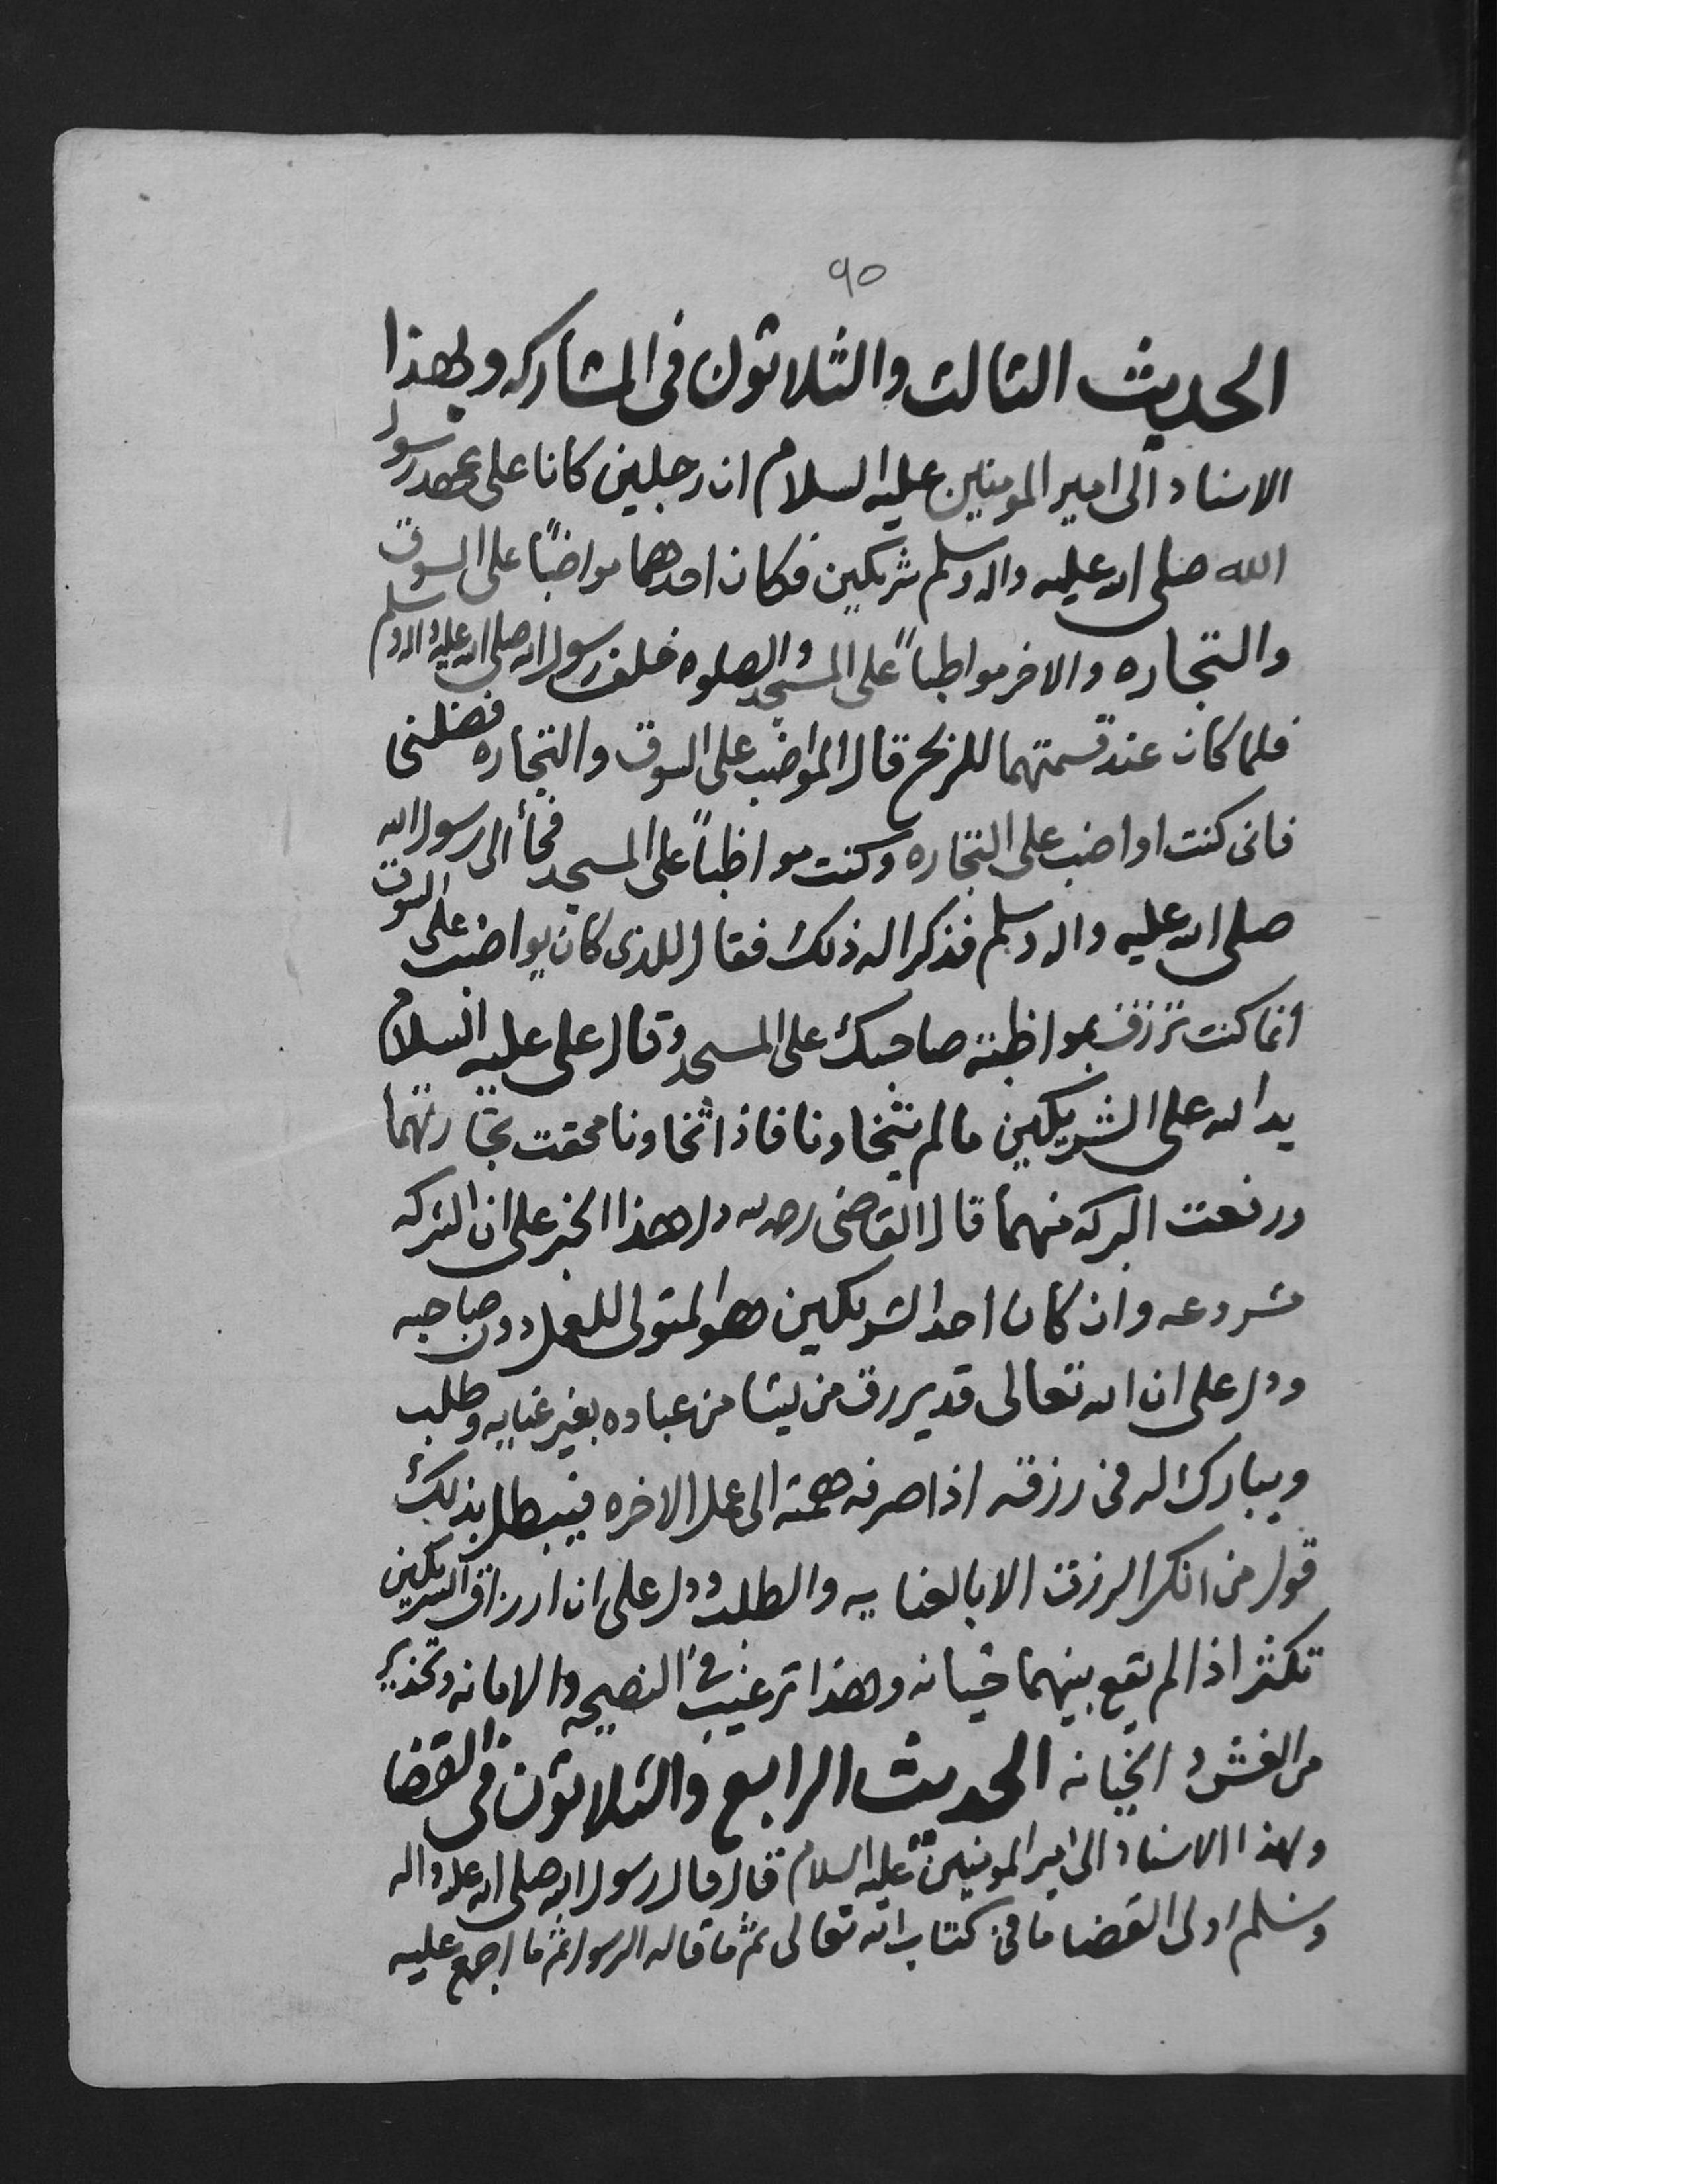 ٩٥
الحديث الثالث والثلاثون فى المشاركه وبهذا
الاسناد الى امير المومنين عليه السلام ان رجلين كانا على عهد رسول
الله صلى الله عليه واله وسلم شريكين فكان احدهما مواضبًا على السوق
والتجاره والاخر مواظبًا على المسجد والصلوه خلف رسول الله صلى الله عليه واله وسلم
فلما كان عند قسمتهما للربح قال المواضب على السوق والتجاره فضلنى
فانى كنت اواضب على التجاره وكنت مواظبًا على المسجد فجأ الى رسول الله
صلى الله عليه واله وسلم فذكرا له ذلك فقال للذى كان يواضب على السوق
انما كنت ترزق بمواظبة صاحبك على المسجد وقال على عليه السلام
يد الله على الشريكين ما لم يتخاونا فاذا تخاونا محقت تجارتهما
ورفعت البركه منهما قال القاضى رحمه الله دل هذا الخبر على ان الشركه
مشروعه وان كان احد الشريكين هو المتولى للعمل دون صاحبه
ودل على ان الله تعالى قد يرزق من يشا من عباده بغير عنايه وطلب
ويبارك له فى رزقه اذا صرف همته الى عمل الاخره فيبطل بذلك
قول من انكر الرزق الا بالعنايه والطلب ودل على ان ارزاق الشريكين
تكثر اذا لم يقع بينهما خيانه وهذا ترغيب فى النصيحه والامانه وتحذير
من الغش والخيانه الحديث الرابع والثلاثون فى القضا
وبهذا الاسناد الى امير المومنين عليه السلام قال قال رسول الله صلى الله عليه واله
وسلم اولى القضا ما فى كتاب الله تعالى ثم ما قاله الرسول ثم ما اجمع عليه